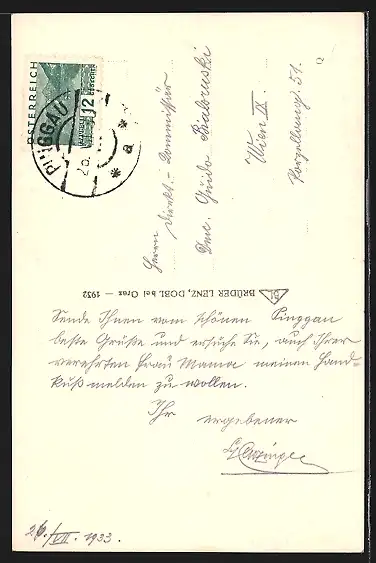 ÖSTERREICH
12
GROSCHEN
PINGGAU
* a *
Herrn
Direkt.-Kommissär
Guido
Wien IX.
Porzellang. 51.
BL BRÜDER LENZ, DOBL bei Graz — 1932
Sende Ihnen vom schönen Pinggau
beste Grüße und ersuche Sie, auch Ihrer
verehrten Frau Mama meinen Hand-
kuß melden zu wollen.
Ihr ergebener
26./VII. 1933.